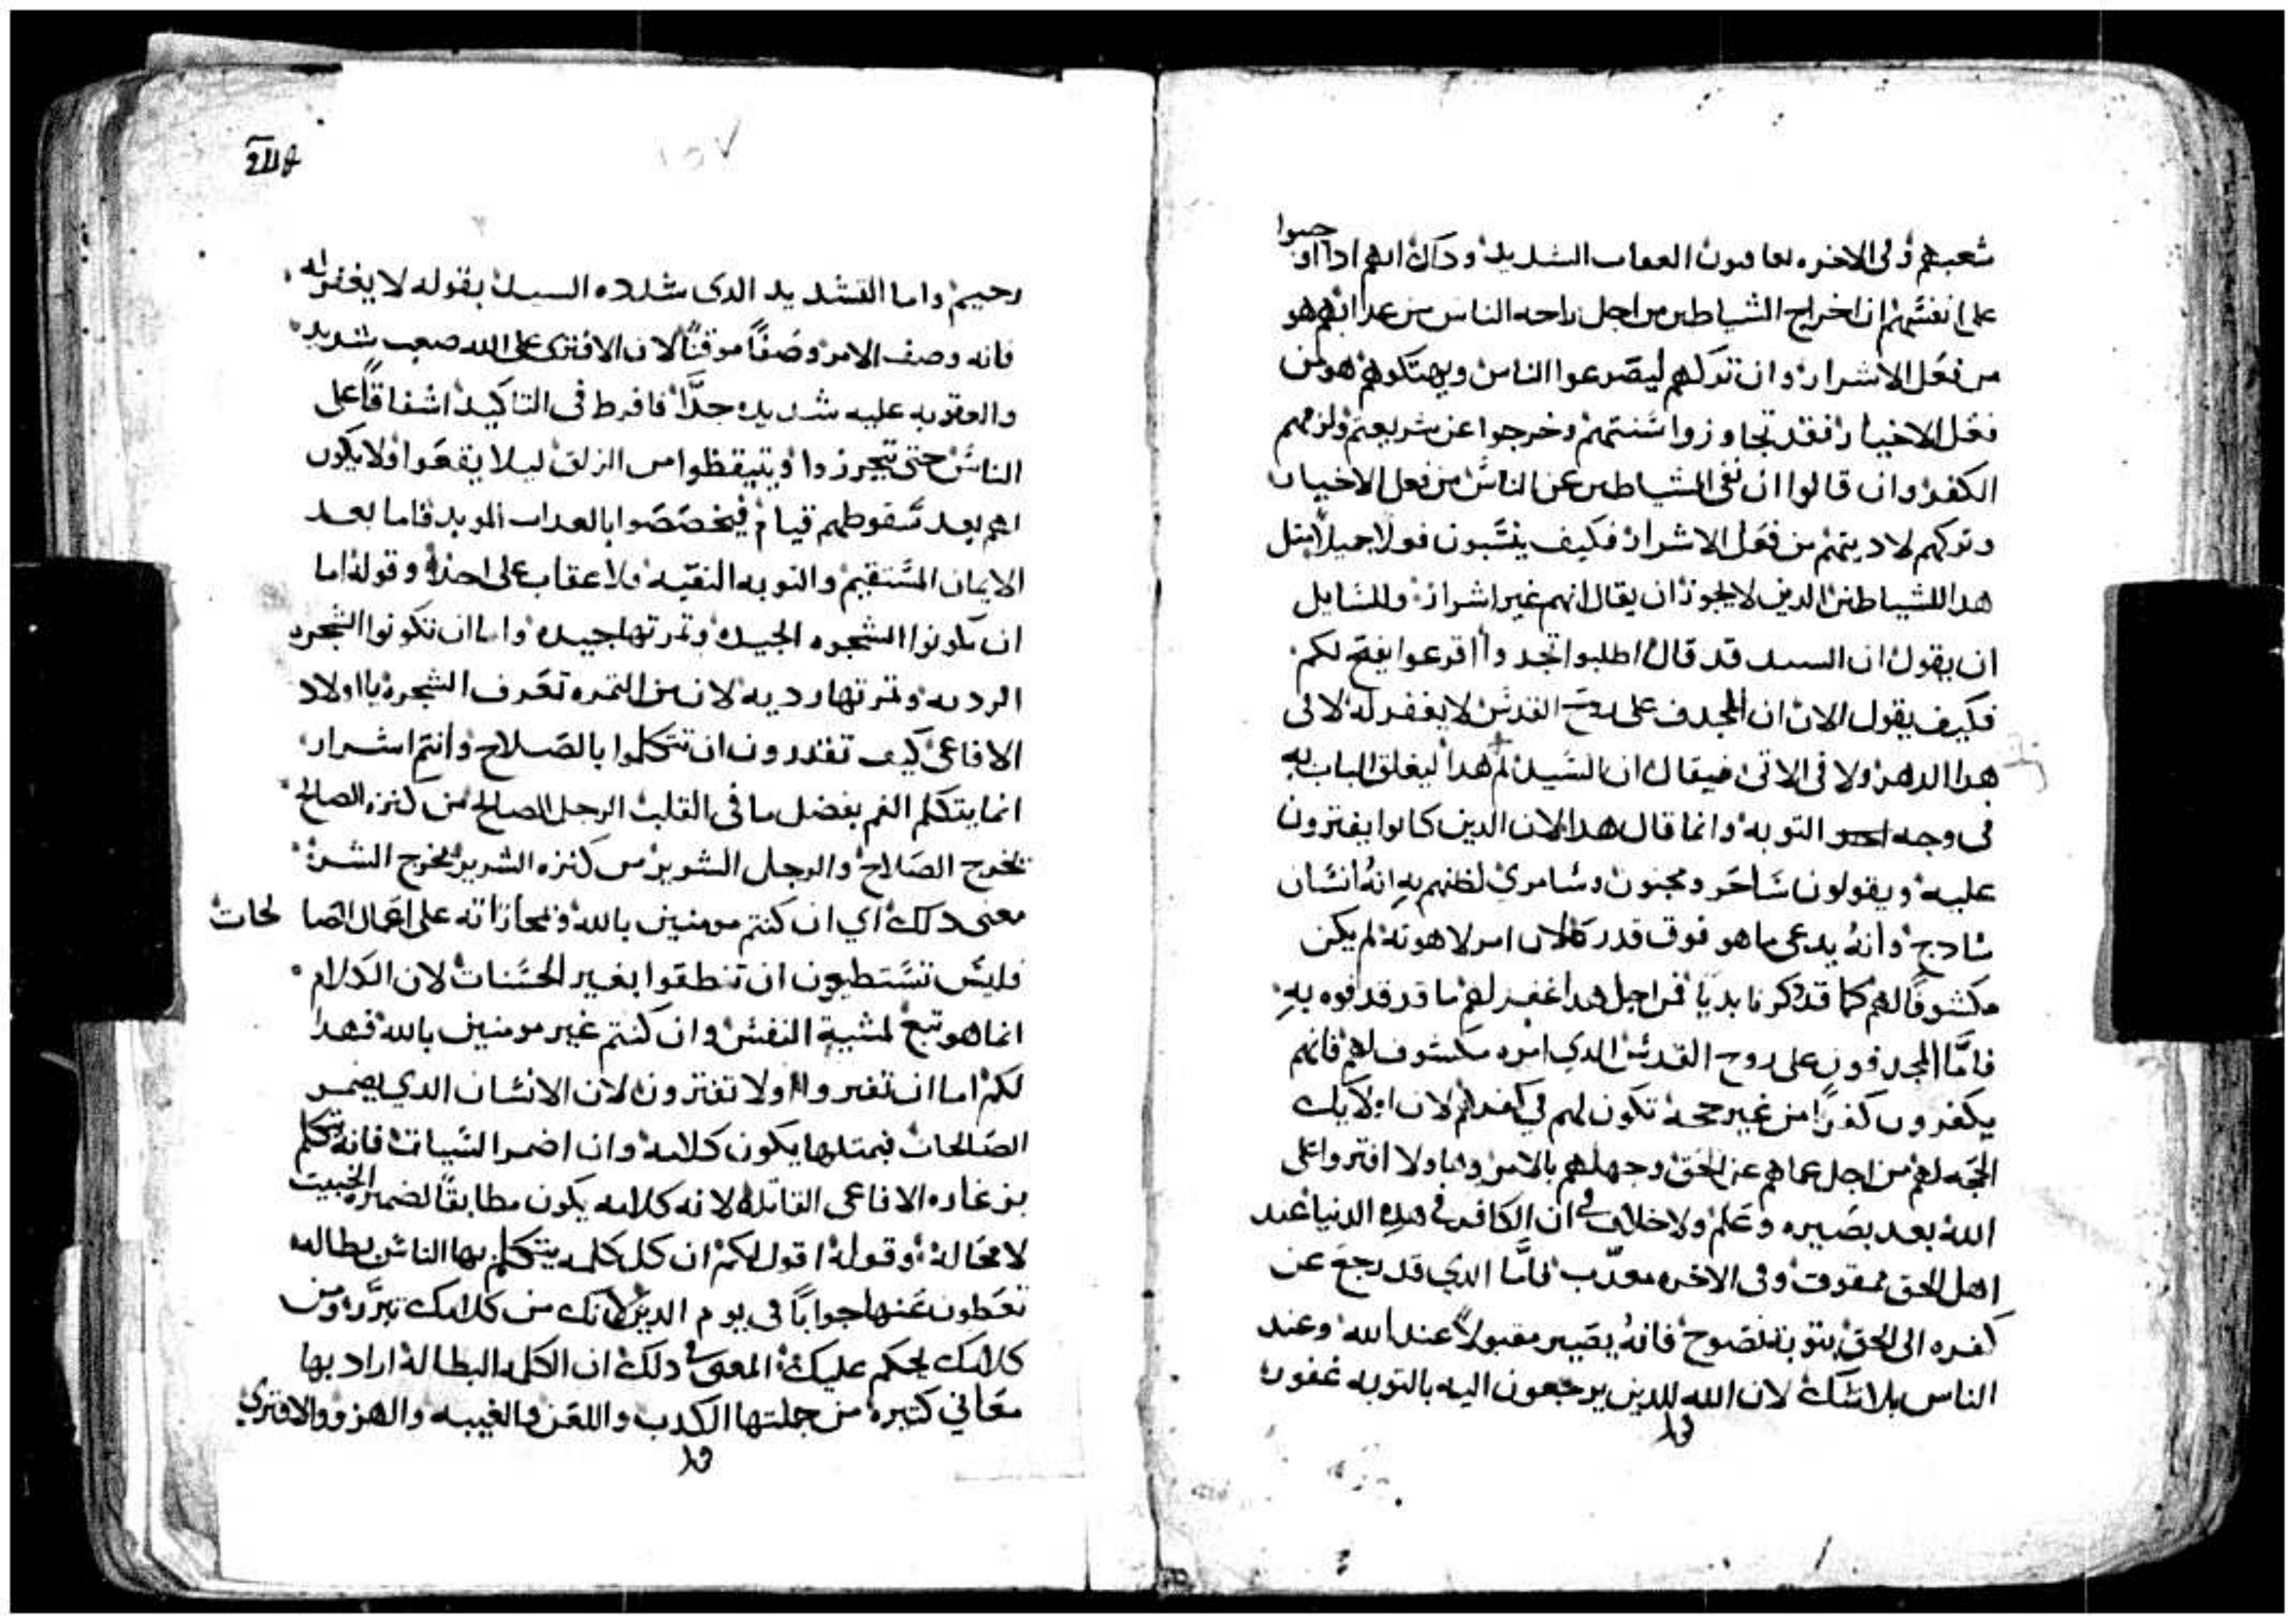 شعبهم وفى الاخره يعاقبون العقاب الشديد وداك انهم ادا اوجبوا
على انفسهم ان اخراج الشياطين من اجل راحه الناس من عدابهم هو
من فعل الاشرار وان تركهم ليصرعوا الناس ويهتكوهم هو من
فعل الاخيار فقد تجاوزوا سنتهم وخرجوا عن شريعتهم ولزمهم
الكفر وان قالوا ان نفى الشياطين عن الناس من فعل الاخيار
وتركهم لاديتهم من فعل الاشرار فكيف ينسبون قولا جميلا مثل
هدا للشياطين الدين لا يجوز ان يقال انهم غير اشرار وللسايل
ان يقول ان السيد قد قال اطلبوا تجدوا اقرعوا يفتح لكم
فكيف يقول الان ان المجدف على روح القدس لا يغفر له لا فى
هدا الدهر ولا فى الاتى فيقال ان السيد لم هدا ليغلق الباب به
فى وجه التوبه وانما قال هدا لان الدين كانوا يفترون
عليه ويقولون ساحر ومجنون وسامرى لظنهم به انه انسان
سادج وانه يدعى ما هو فوق قدره لان امر لاهوته لم يكن
مكشوفا لهم كما قد دكرنا بديا فمن اجل هدا غفر لهم ما قد قدفوه به
فاما المجدفون على روح القدس الدي امره مكشوف لهم فانهم
يكفرون كفرا من غير حجه تكون لهم في كفرهم لان اولايك
الحجه لهم من اجل عماهم عن الحق وجهلهم بالامر وهاولا افتروا على
الله بعد بصيره وعلم ولا خلاف في ان الكافر في هده الدنيا عند
اهل الحق ممقوت وفى الاخره معدب فاما الدي قد رجع عن
كفره الى الحق بتوبة نصوح فانه يصير مقبولا عند الله وعند
الناس بلا شك لان الله للدين يرجعون اليه بالتوبه غفور
١٥٧
رحيم واما التشديد الدى شدده السيد بقوله لا يغفر له
فانه وصف الامر وصفا موقنا لان الافترى على الله صعب شديد
والعقوبه عليه شديده جدا فافرط فى التاكيد اشفاقا على
الناس حتى يتحرزوا ويتيقظوا من الزلق ليلا يقعوا ولا يكون
لهم بعد سقوطهم قيام فيخصصوا بالعداب الموبد فاما بعد
الايمان المستقيم والتوبه النقيه فلا عقاب على احد وقوله اما
ان تكونوا الشجره الجيده وثمرتها جيده واما ان تكونوا الشجره
الرديه وثمرتها رديه لان من الثمره تعرف الشجره يا اولاد
الافاعى كيف تقدرون ان تتكلموا بالصلاح وانتم اشرار
انما يتكلم الفم بفضل ما فى القلب الرجل الصالح من كنزه الصالح
يخرج الصلاح والرجل الشرير من كنزه الشرير يخرج الشر
معنى دلك اي ان كنتم مومنين بالله ومجازاته على اعمال الصالحات
فليس تستطيعون ان تنطقوا بغير الحسنات لان الكلام
انما هو تبع لمشية النفس وان كنتم غير مومنين بالله فهدا
لكم اما ان تفتروا ولا تفترون لان الانسان الدي يضمر
الصالحات فبمثلها يكون كلامه وان اضمر السيات فانه يتكلم
بزعاره الافاعى القاتله لانه كلامه يكون مطابقا لضميره الخبيث
لا محاله وقوله اقول لكم ان كل كلمه يتكلم بها الناس بطاله
تعطون عنها جوابا فى يوم الدين لانك من كلامك تبرر ومن
كلامك يحكم عليك المعنى في دلك ان الكلمه البطاله اراد بها
معاني كثيره من جملتها الكدب واللعن والغيبه والهزوو الافتري